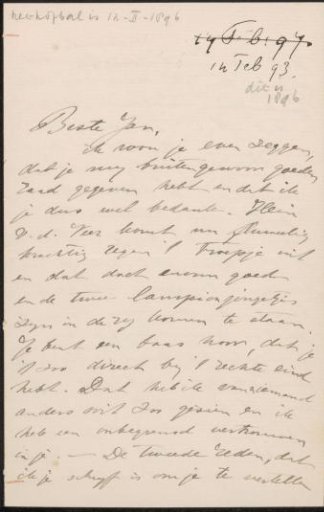 14 Feb. 97.
14 Feb 93.
dit is
1896
Beste Jan,
Ik woon je even zeggen,
dat je mij buitengewoon goeden
raad gegeven hebt en dat ik
je dus wel bedank. Klein
v. d. Veer komt nu
krachtig tegen 't troepje uit
en dat doet enorm goed
en de twee lampionjingetjes
zijn in de zij komen te staan.
Je bent een baas hoor, dat je
't zoo direct bij 't rechte eind
hebt. Dat heb ik van niemand
anders ooit zoo gezien en ik
heb een onbegrensd vertrouwen
in je. — De tweede reden, dat
ik je schrijf is om je te vertellen